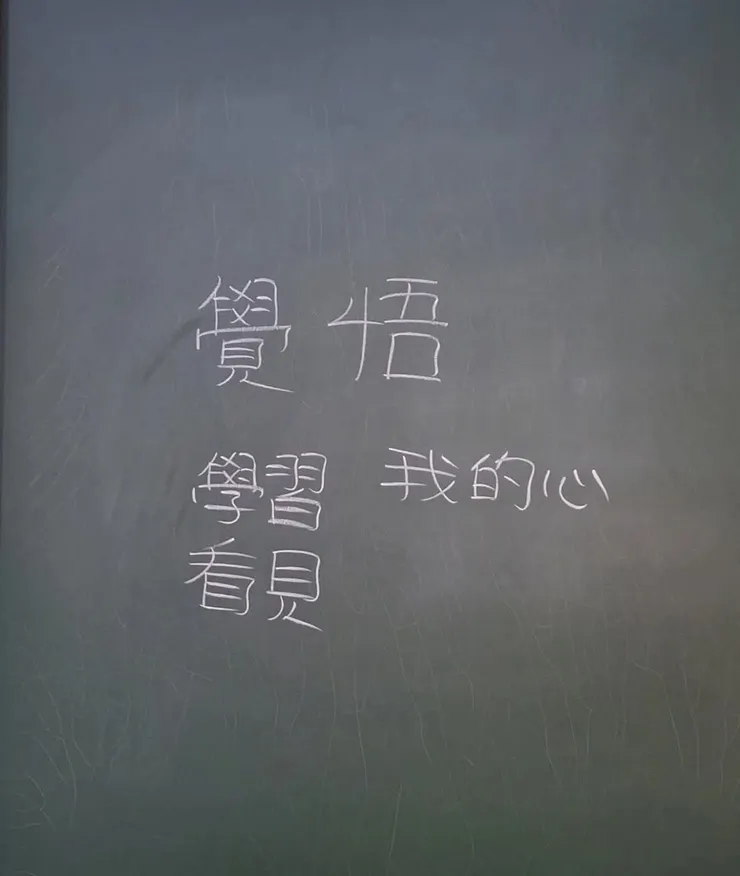 覺悟
學習 我的心
看見